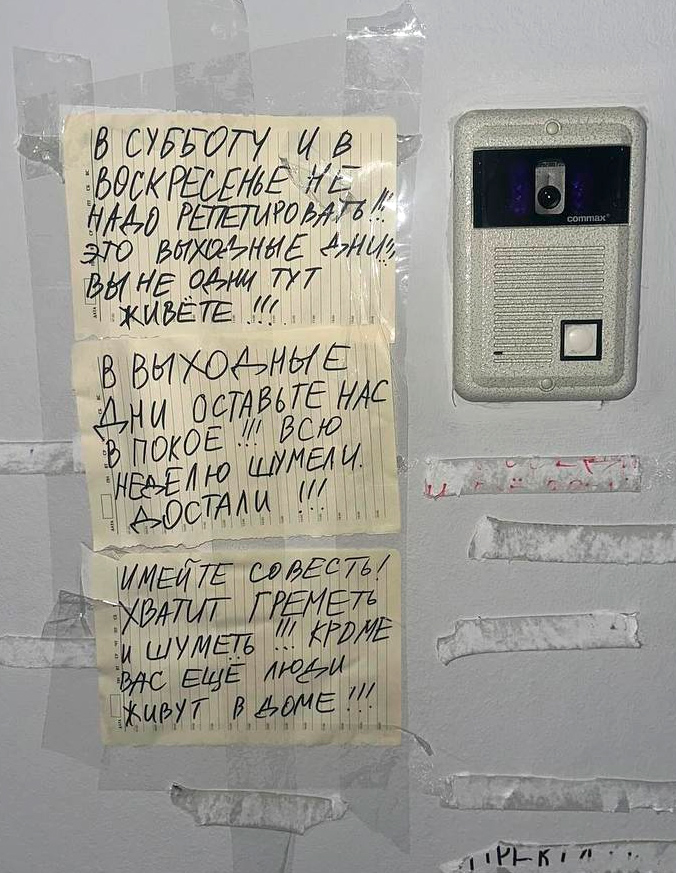 В СУББОТУ И В
ВОСКРЕСЕНЬЕ НЕ
НАДО РЕПЕТИРОВАТЬ!!
ЭТО ВЫХОДНЫЕ ДНИ!!
ВЫ НЕ ОДНИ ТУТ
ЖИВЁТЕ !!!
В ВЫХОДНЫЕ
ДНИ ОСТАВЬТЕ НАС
В ПОКОЕ !!! ВСЮ
НЕДЕЛЮ ШУМЕЛИ.
ДОСТАЛИ !!!
ИМЕЙТЕ СОВЕСТЬ!
ХВАТИТ ГРЕМЕТЬ
И ШУМЕТЬ !!! КРОМЕ
ВАС ЕЩЁ ЛЮДИ
ЖИВУТ В ДОМЕ !!!
commax